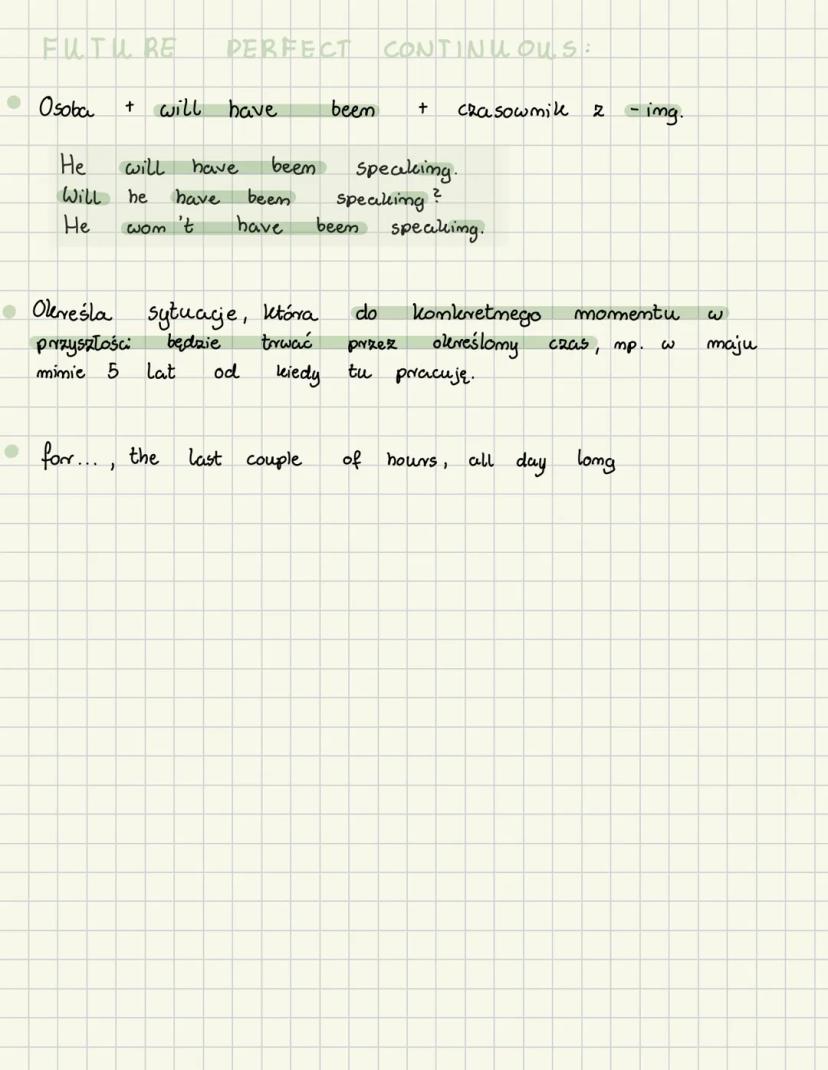 FUTURE PERFECT CONTINUOUS:
Osoba + will have been + czasownik z -ing.
He will have been speaking.
Will he have been speaking?
He won't have been speaking.
Określa sytuacje, która do konkretnego momentu w
przyszłości będzie trwać przez określony czas, np. w maju
minie 5 lat od kiedy tu pracuję.
for..., the last couple of hours, all day long